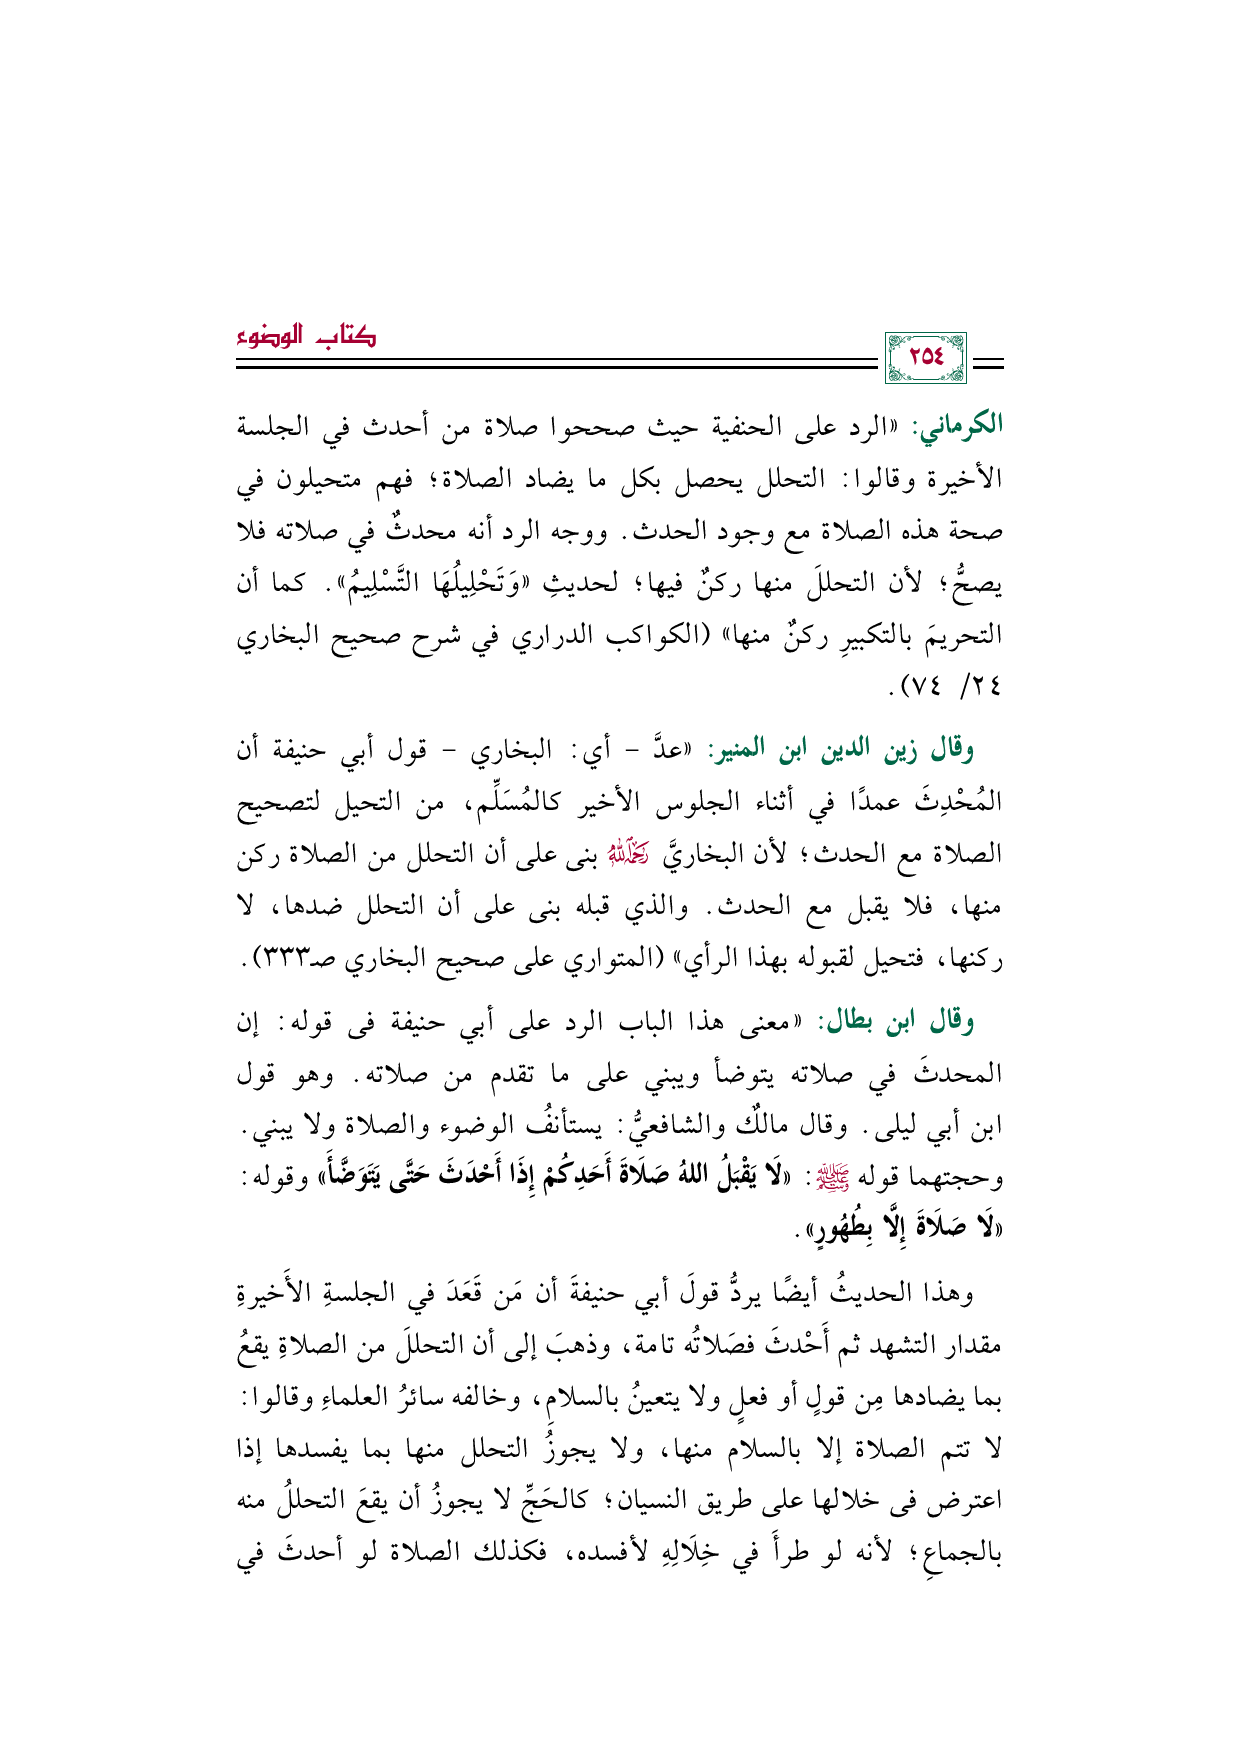 كتاب الوضوء
٢٥٤
الكرماني: «الرد على الحنفية حيث صححوا صلاة من أحدث في الجلسة
الأخيرة وقالوا: التحلل يحصل بكل ما يضاد الصلاة؛ فهم متحيلون في
صحة هذه الصلاة مع وجود الحدث. ووجه الرد أنه محدثٌ في صلاته فلا
يصحُّ؛ لأن التحللَ منها ركنٌ فيها؛ لحديثِ «وَتَحْلِيلُهَا التَّسْلِيمُ». كما أن
التحريمَ بالتكبيرِ ركنٌ منها» (الكواكب الدراري في شرح صحيح البخاري
٢٤/ ٧٤).
وقال زين الدين ابن المنير: «عدَّ – أي: البخاري – قول أبي حنيفة أن
المُحْدِثَ عمدًا في أثناء الجلوس الأخير كالمُسَلِّم، من التحيل لتصحيح
الصلاة مع الحدث؛ لأن البخاريَّ رَحِمَهُ اللَّهُ بنى على أن التحلل من الصلاة ركن
منها، فلا يقبل مع الحدث. والذي قبله بنى على أن التحلل ضدها، لا
ركنها، فتحيل لقبوله بهذا الرأي» (المتواري على صحيح البخاري صـ٣٣٣).
وقال ابن بطال: «معنى هذا الباب الرد على أبي حنيفة فى قوله: إن
المحدثَ في صلاته يتوضأ ويبني على ما تقدم من صلاته. وهو قول
ابن أبي ليلى. وقال مالكٌ والشافعيُّ: يستأنفُ الوضوء والصلاة ولا يبني.
وحجتهما قوله ﷺ: «لَا يَقْبَلُ اللهُ صَلَاةَ أَحَدِكُمْ إِذَا أَحْدَثَ حَتَّى يَتَوَضَّأَ» وقوله:
«لَا صَلَاةَ إِلَّا بِطُهُورٍ».
وهذا الحديثُ أيضًا يردُّ قولَ أبي حنيفةَ أن مَن قَعَدَ في الجلسةِ الأَخيرةِ
مقدار التشهد ثم أَحْدثَ فصَلاتُه تامة، وذهبَ إلى أن التحللَ من الصلاةِ يقعُ
بما يضادها مِن قولٍ أو فعلٍ ولا يتعينُ بالسلامِ، وخالفه سائرُ العلماءِ وقالوا:
لا تتم الصلاة إلا بالسلام منها، ولا يجوزُ التحلل منها بما يفسدها إذا
اعترض فى خلالها على طريق النسيان؛ كالحَجِّ لا يجوزُ أن يقعَ التحللُ منه
بالجماعِ؛ لأنه لو طرأَ في خِلَالِهِ لأفسده، فكذلك الصلاة لو أحدثَ في